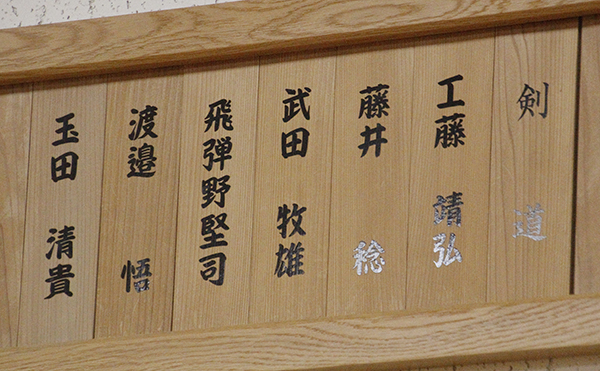 剣 道
工藤 靖弘
藤井 稔
武田 牧雄
飛弾野堅司
渡邉 悟
玉田 清貴